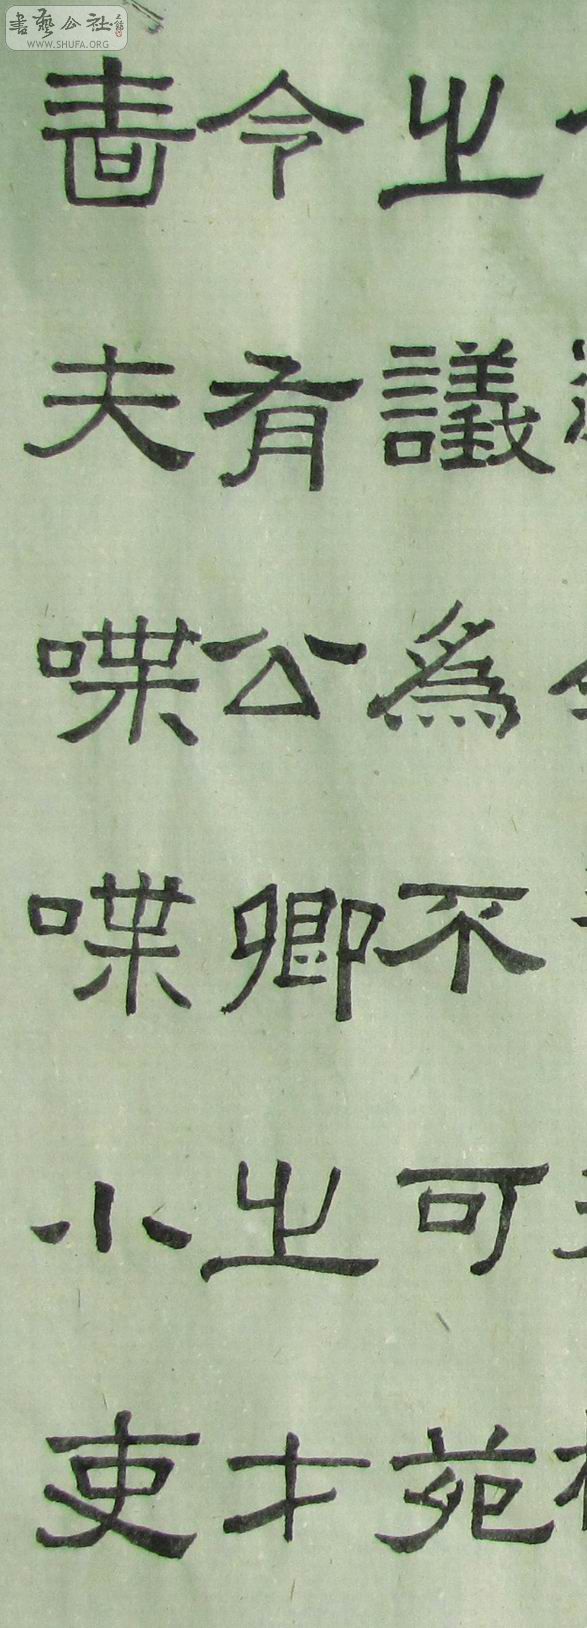 之議為不可苑
令有公卿之才
嗇夫喋喋小吏
書藝公社
WWW.SHUFA.ORG